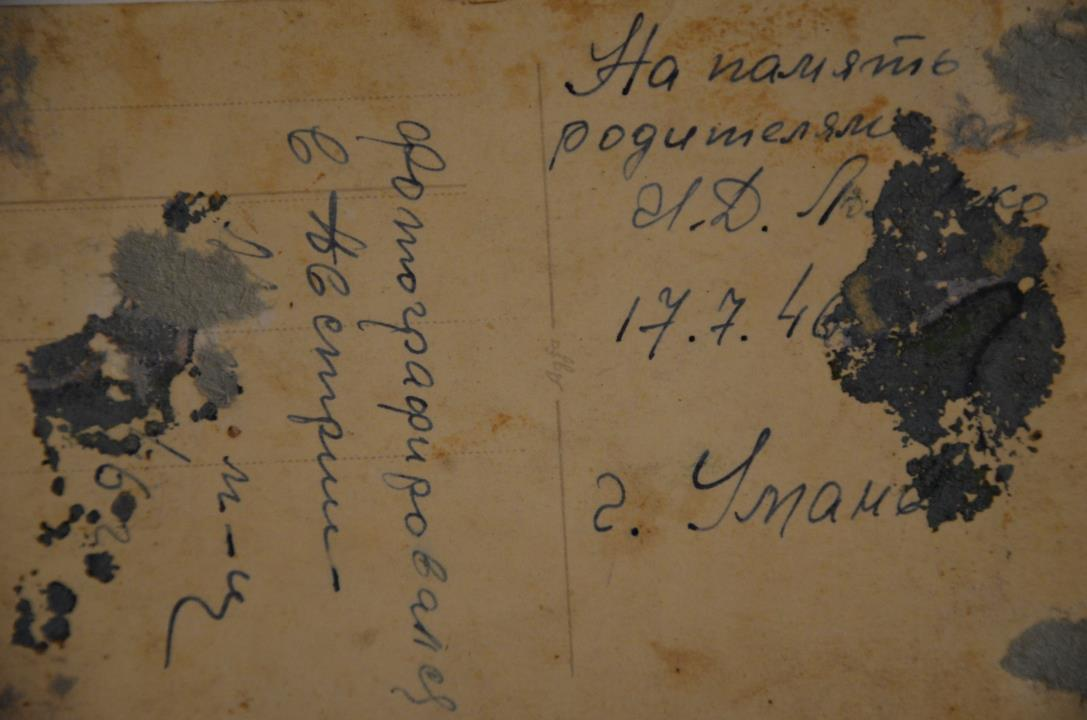 На память
родителям от
И.Д.
17.7.46
г. Умань
Фотографировался
в Австрии
м-ц